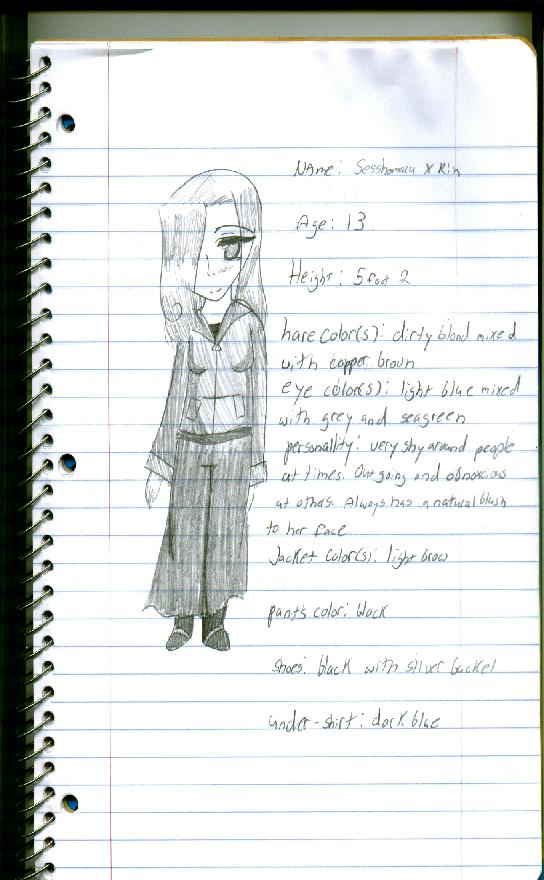 Name: Sesshomaru X Rin
Age: 13
Height: 5 foot 2
hare color(s): dirty blond mixed
with copper broun
eye color(s): light blue mixed
with grey and seagreen
personallity: very shy around people
at times. Out going and obnoxious
at others. Always has a natural blush
to her face
Jacket color(s): light brow
pant's color: black
shoes: black with silver buckel
under-shirt: dark blue